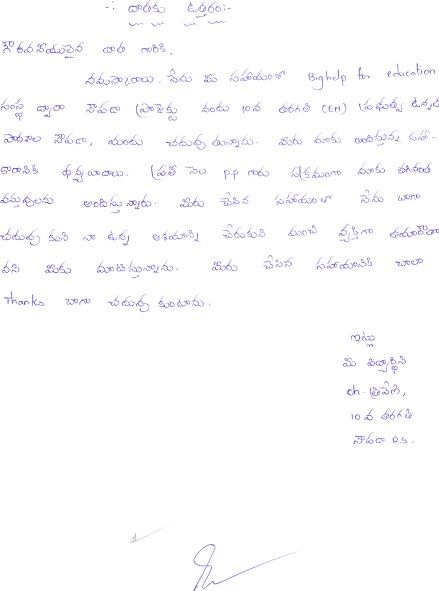 -: దాతకు ఉత్తరం:-
గౌరవనీయులైన దాత గారికి,
నమస్కారాలు. నేను మీ సహాయంతో Bighelp for education
సంస్థ ద్వారా నౌపడా ప్రాజెక్టు నందు 10వ తరగతి (EM) ప్రభుత్వ ఉన్నత
పాఠశాల నౌపడా, యందు చదువు తున్నాను. మీరు మాకు అందిస్తున్న సహా-
కారానికి ధన్యవాదాలు. ప్రతీ నెల P.P గారు సక్రమంగా మాకు తగినంత
వస్తువులను అందిస్తున్నారు. మీరు చేసిన సహాయంతో నేను బాగా
చదువు కుని నా ఉన్న ఆశయాన్ని చేరుకుని మంచి వ్యక్తిగా తయారౌతా
నని మీకు మాటిస్తున్నాను. మీరు చేసిన సహాయానికి చాలా
Thanks బాగా చదువు కుంటాను.
ఇట్లు
మీ విద్యార్థిని
ch. త్రివేణి,
10 వ తరగతి
నౌపడా R.S.